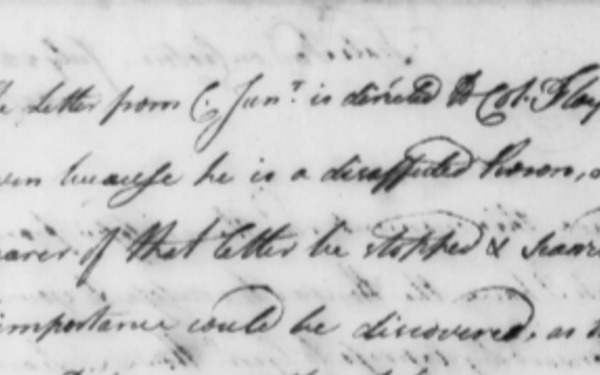 Letter from C. Junr. is directed to Col. Floy
because he is a disaffected Person,
of that letter be stopped & sear
importance could be discovered, as